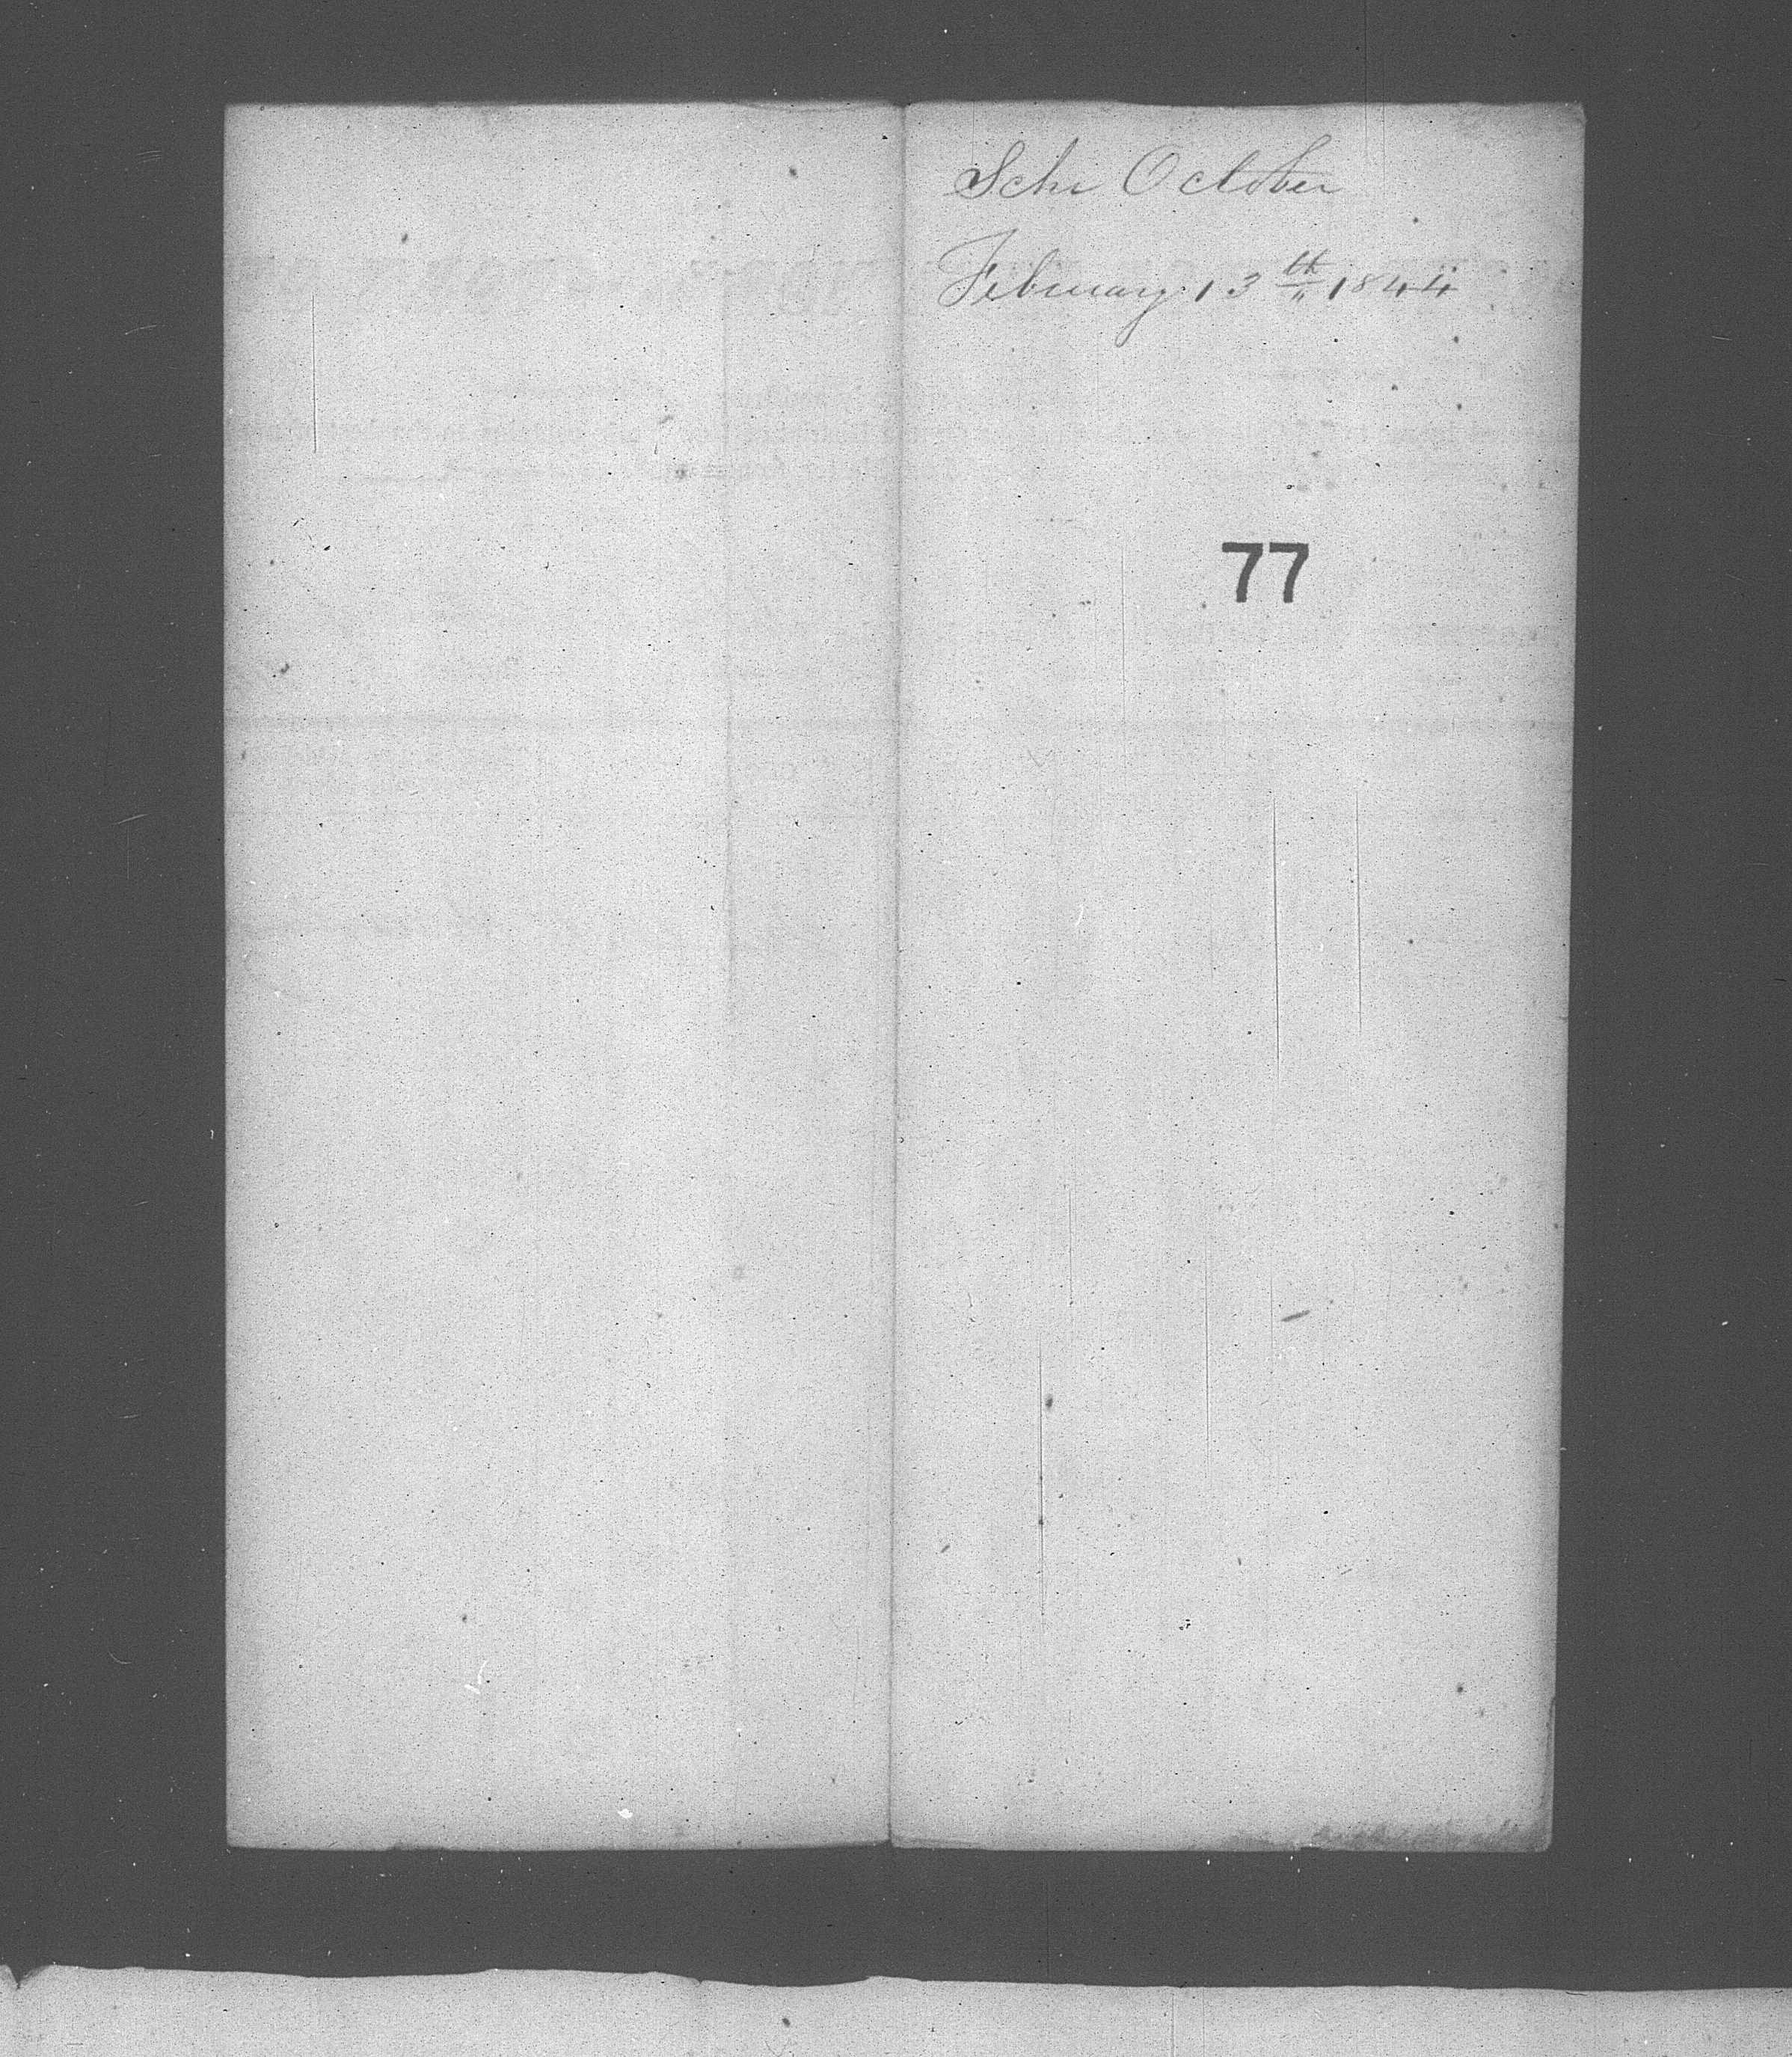 Schr October
February 13th 1844
77